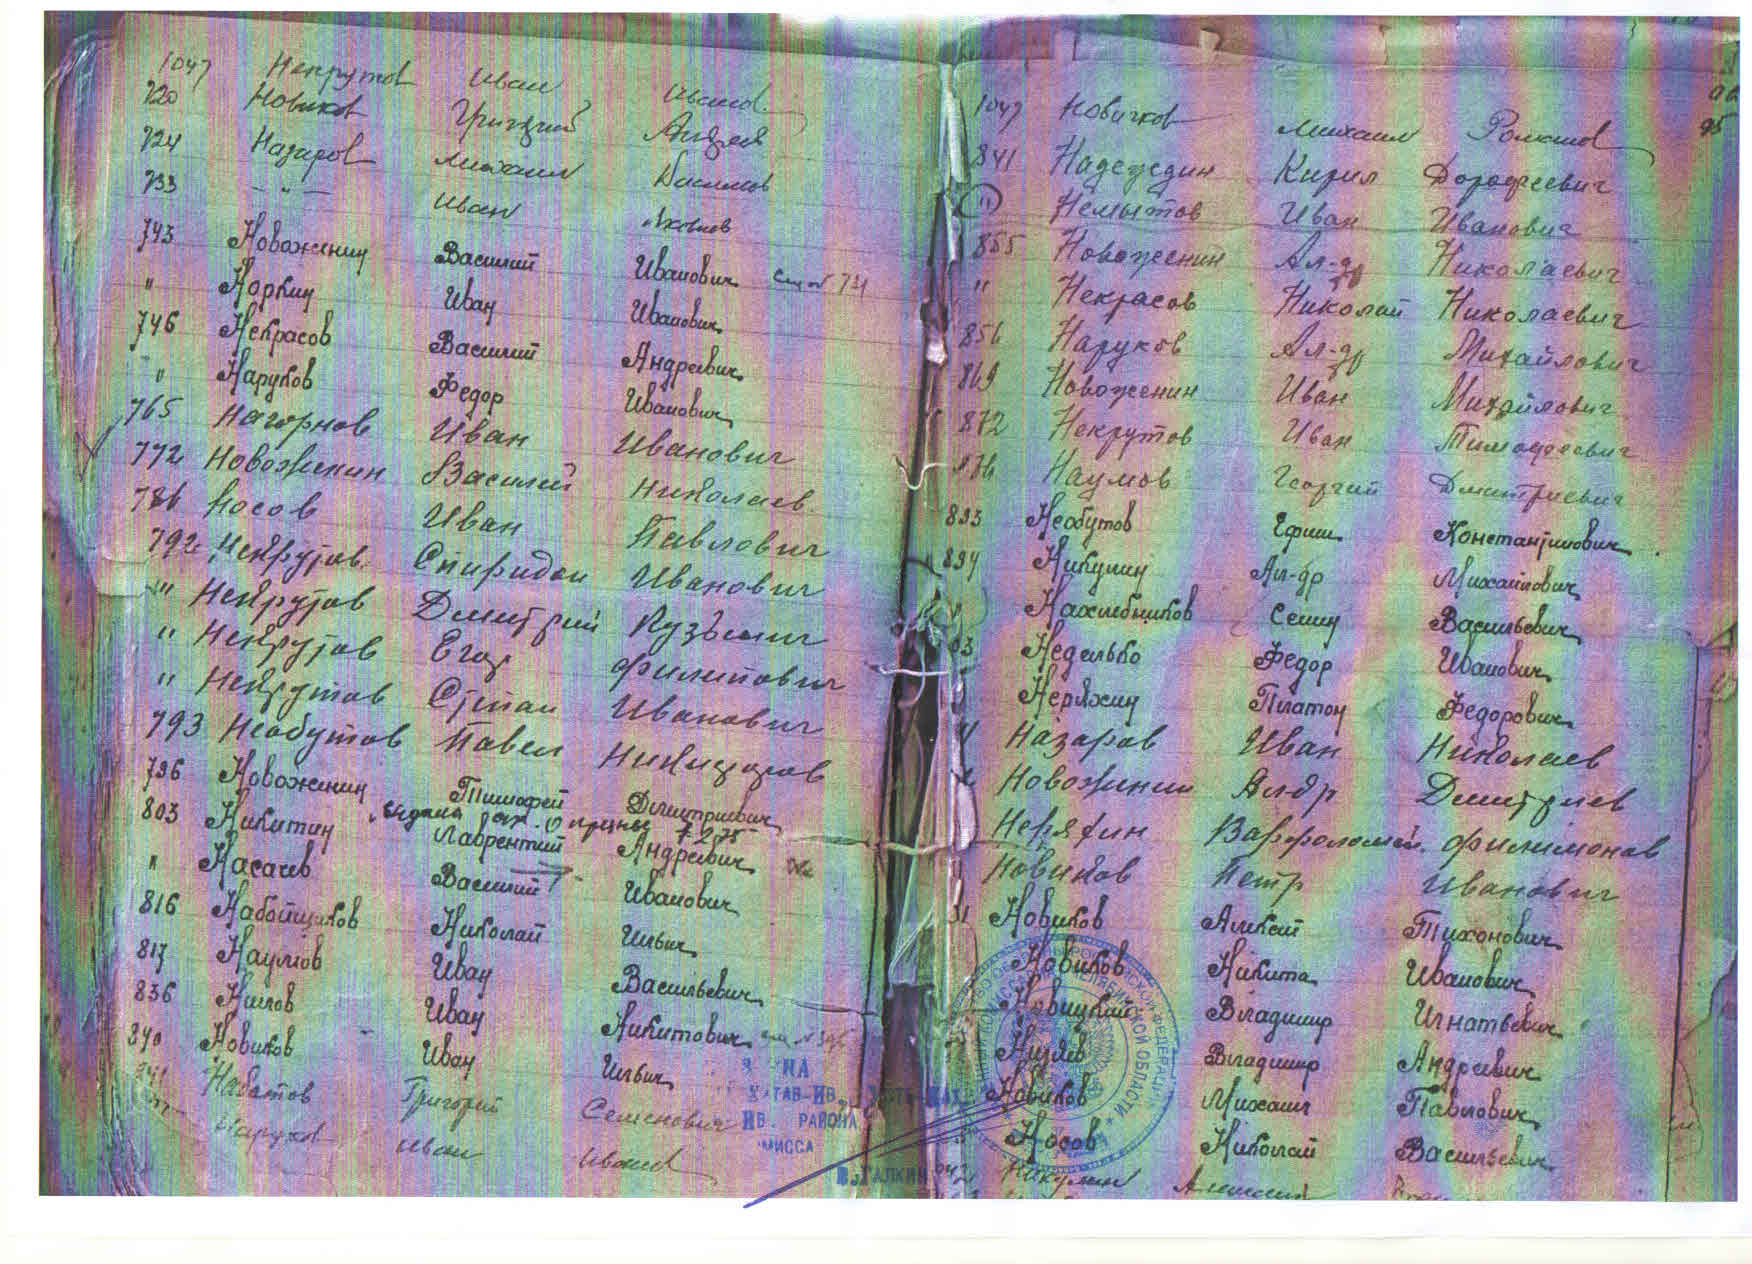 1047 Некрутов Иван Иванов.
720 Новиков Григорий Андрея
724 Назаров Михаил Васильев
733 — " — Иван Яковлев
743 Новоженин Василий Иванович
" Норкин Иван Иванович
746 Некрасов Василий Андреевич
" Наруков Федор Иванович
765 Нагорнов Иван Иванович
772 Новоженин Василий Николаев.
786 Носов Иван Павлович
792 Некрутов Спиридон Иванович
" Некрутов Дмитрий Кузьмич
" Некрутов Егор Филипович
" Некрутов Степан Иванович
793 Необутов Павел Никифоров
796 Новоженин Тимофей Дмитриевич
803 Никитин Лаврентий Андреевич
" Насачев Василий Иванович
816 Набойщиков Николай Ильич
817 Наумов Иван Васильевич
836 Нилов Иван Никитович
840 Новиков Иван Ильич
841 Набатов Григорий Семенович
Наруков Иван Иванов
1047 Новичков Михаил Романов
841 Надеждин Кирил Дорофеевич
" Немытов Иван Иванович
855 Новоженин Ал-др Николаевич
" Некрасов Николай Николаевич
856 Наруков Ал-др Михайлович
869 Новоженин Иван Михайлович
872 Некрутов Иван Тимофеевич
876 Наумов Георгий Дмитриевич
893 Необутов Ефим Константинович
894 Никулин Ал-др Михайлович
Нахлебщиков Семен Васильевич
03 Неделько Федор Иванович
Неряхин Платон Федорович
Назаров Иван Николаев
Новоженин Алдр Дмитриев
Неряхин Варфоломей Филимонов
Новиков Петр Иванович
31 Новиков Алексей Тихонович
Новиков Никита Иванович
Новицкий Владимир Игнатьевич
Низяев Владимир Андреевич
Новиков Михаил Павлович
Носов Николай Васильевич
942 Никулин Алексей
РАЙОНА
ГАЛКИН
ЧЕЛЯБИНСКОЙ ОБЛАСТИ